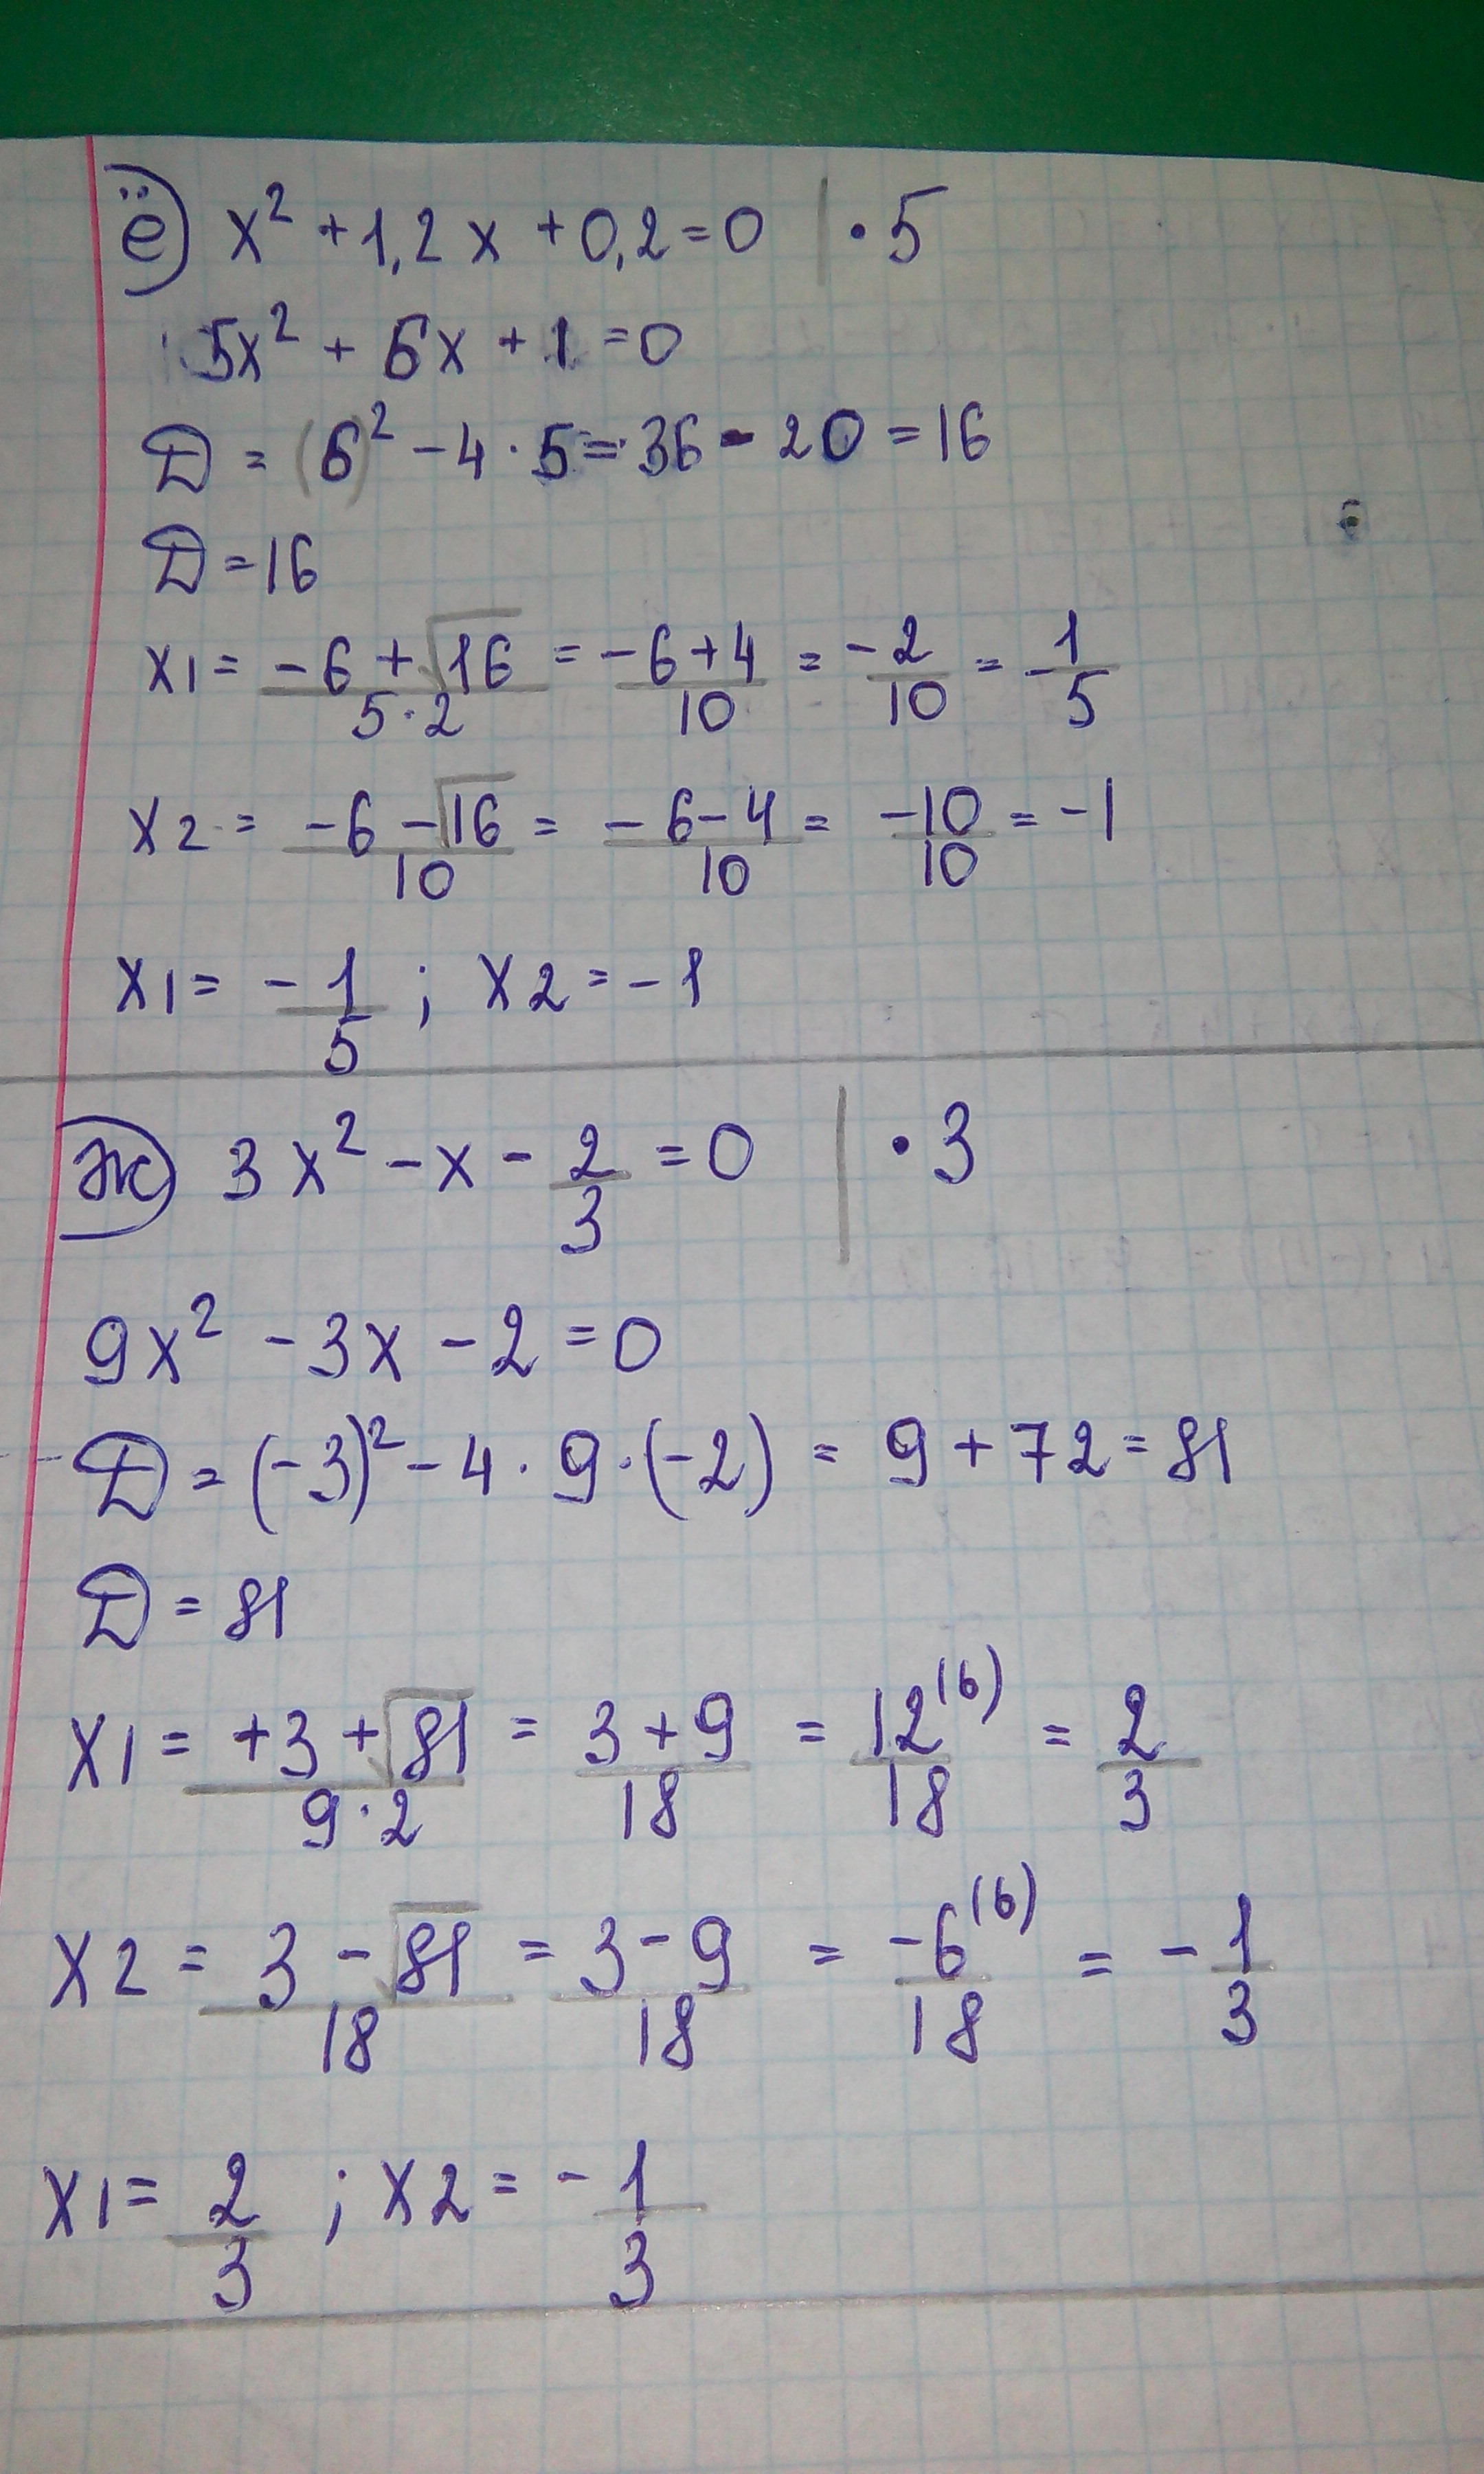 ё) x² + 1,2x + 0,2 = 0 | · 5
5x² + 6x + 1 = 0
D = (6)² - 4 · 5 = 36 - 20 = 16
D = 16
x1 = (-6 + √16)/(5·2) = (-6+4)/10 = -2/10 = -1/5
x2 = (-6 - √16)/10 = (-6-4)/10 = -10/10 = -1
x1 = -1/5 ; x2 = -1
ж) 3x² - x - 2/3 = 0 | · 3
9x² - 3x - 2 = 0
D = (-3)² - 4 · 9 · (-2) = 9 + 72 = 81
D = 81
x1 = (+3 + √81)/(9·2) = (3 + 9)/18 = 12⁽⁶⁾/18 = 2/3
x2 = (3 - √81)/18 = (3 - 9)/18 = -6⁽⁶⁾/18 = -1/3
x1 = 2/3 ; x2 = -1/3